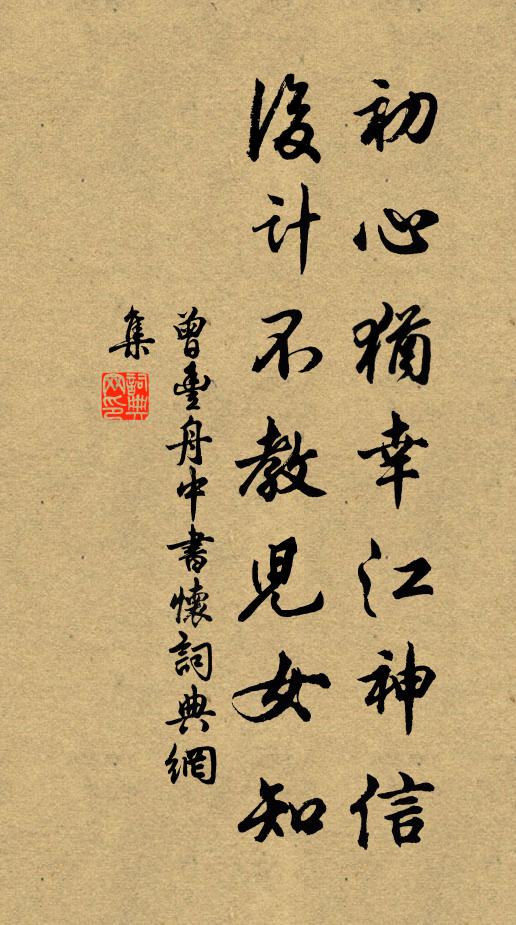 初心猶幸江神信
後計不教兒女知
曾豐舟中書懷詞典網
集
詞典
網印